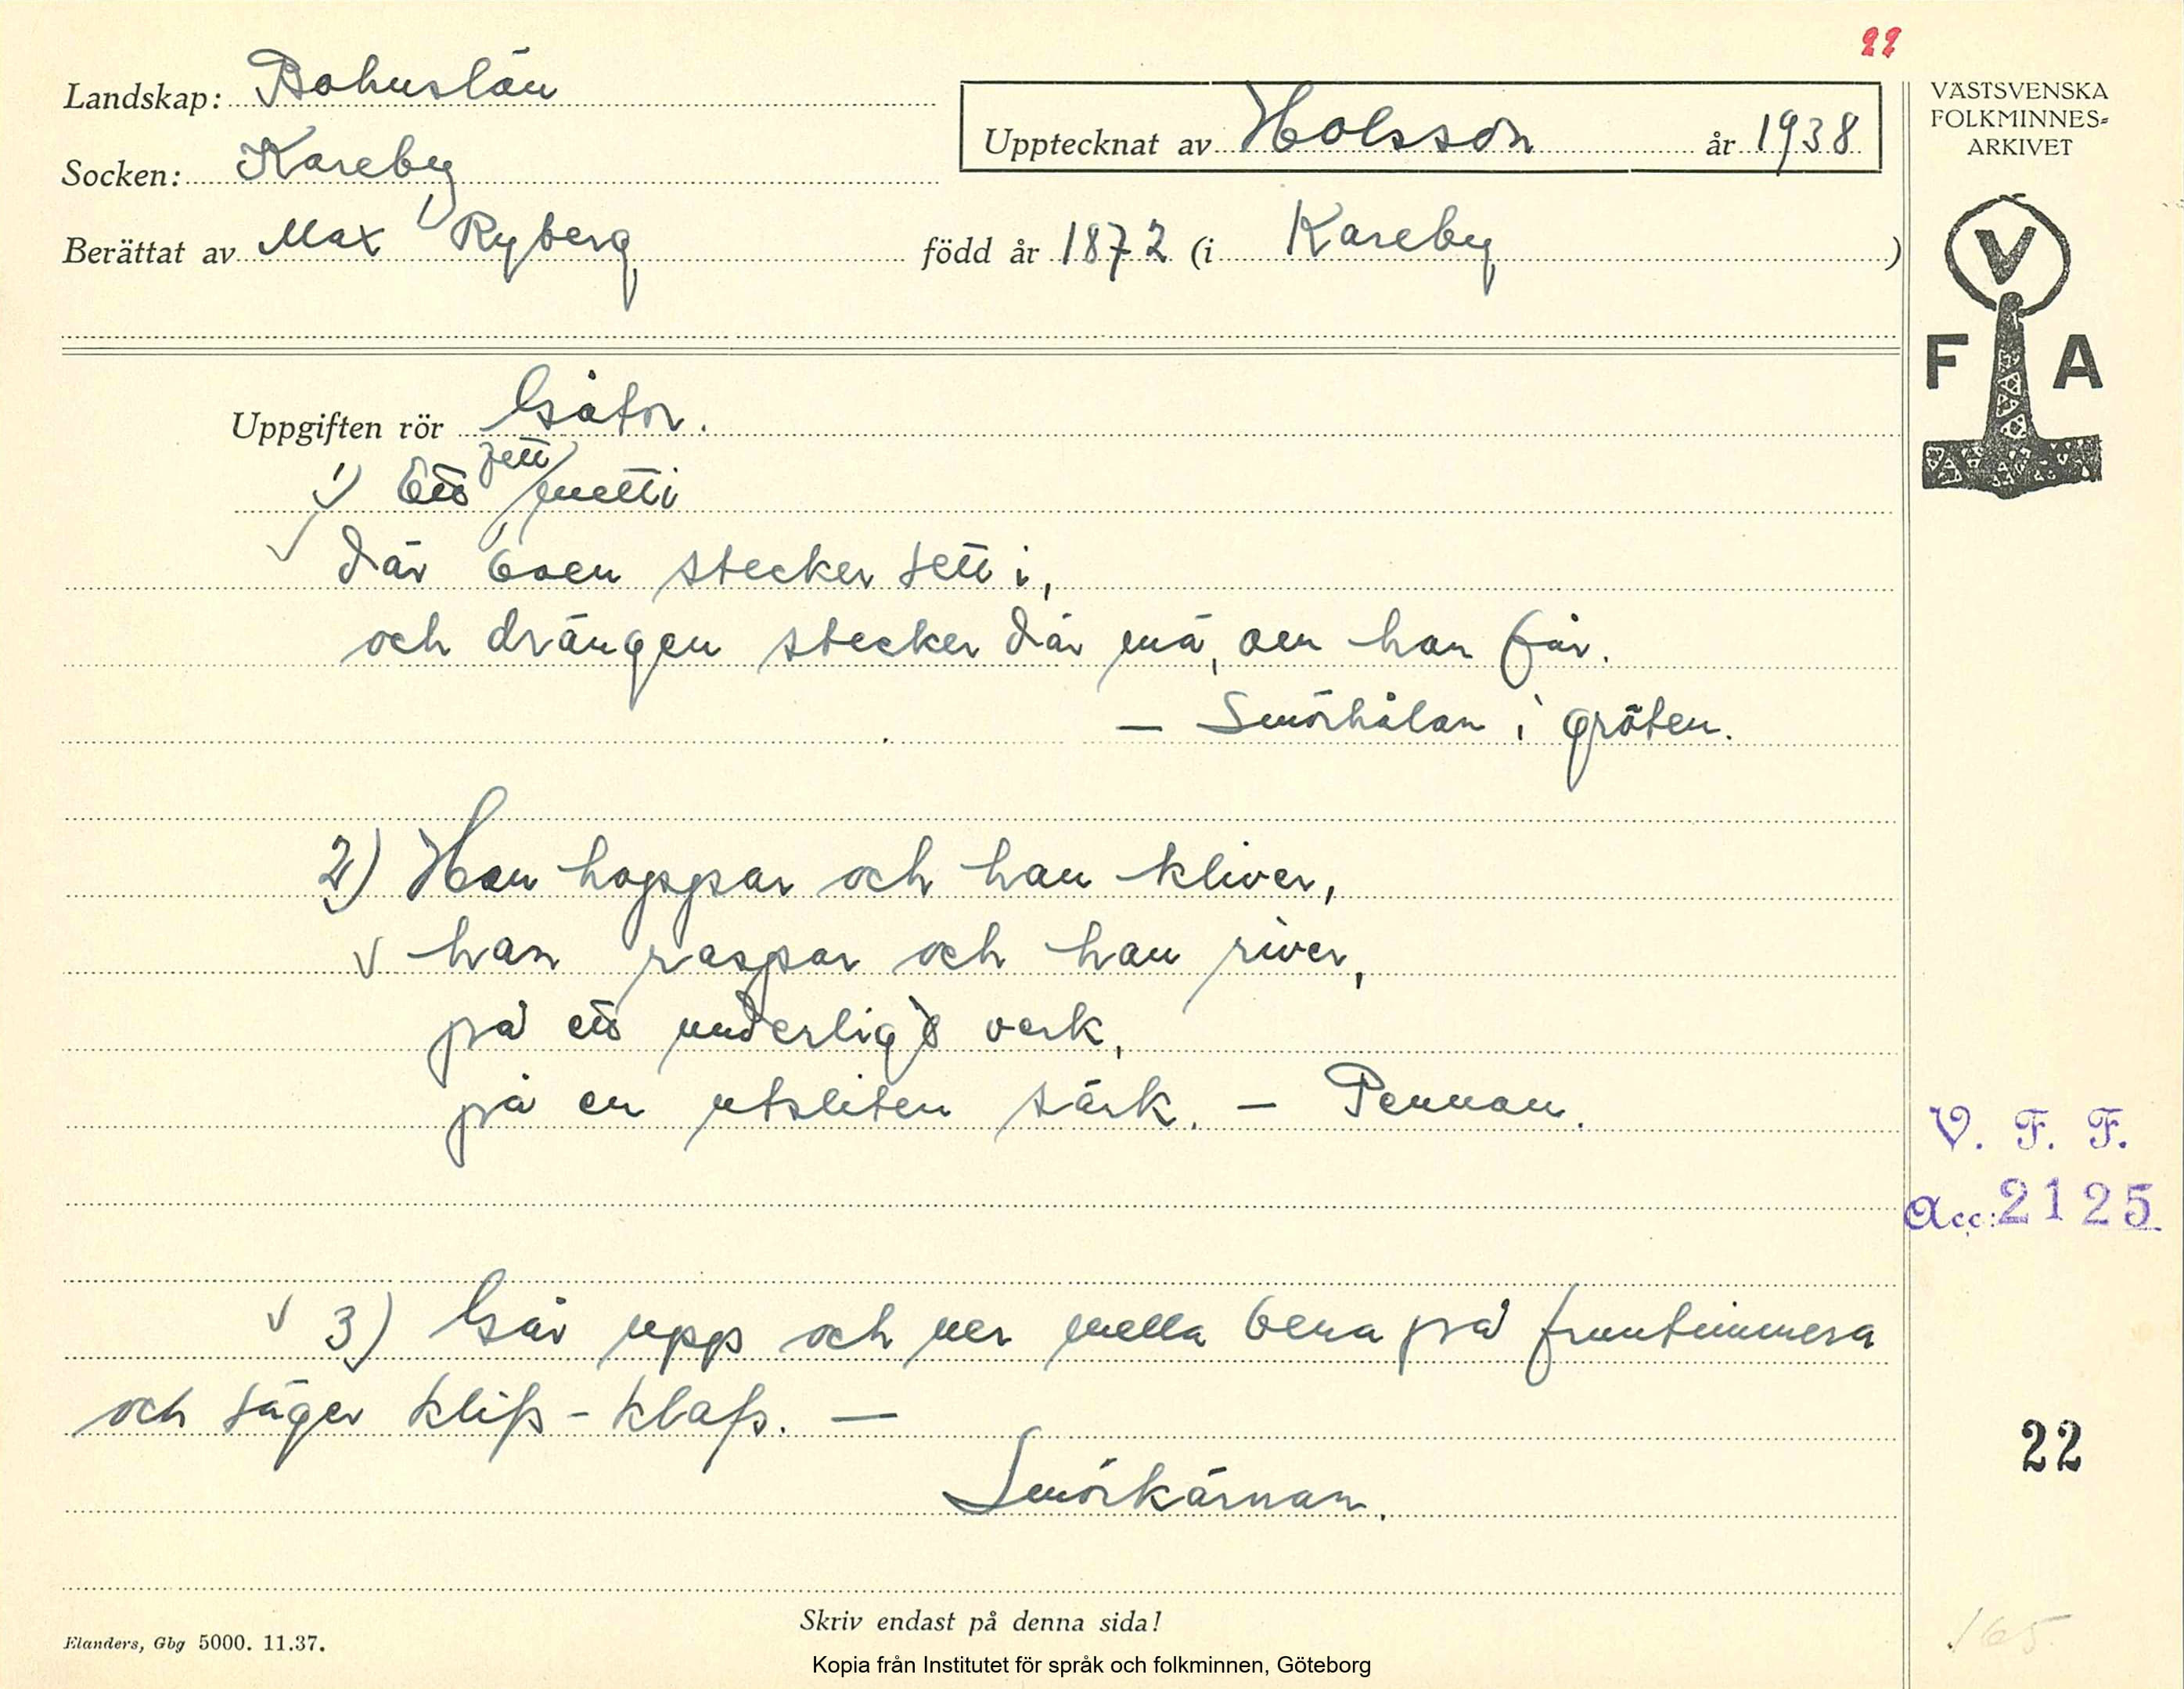 22
Landskap: Bohuslän
Upptecknat av Holsson år 1938
Socken: Kareby
Berättat av Max Ryberg född år 1872 (i Kareby)
VÄSTSVENSKA
FOLKMINNES-
ARKIVET
V
F A
Uppgiften rör Gåtor.
1) Ett
där boen stecker sett i,
och drängen stecker där må, om han får.
— Smörhålan i gröten.
2) Han hoppar och han kliver,
han raspar och han river,
på ett underligt verk,
på en utsliten särk. — Pennan.
V. F. F.
Acc: 2125
3) Går upp och ner mella bena på fruntimmera
och säger klifs-klafs. —
22
Smörkärnan.
Skriv endast på denna sida!
Elanders, Gbg 5000. 11.37.
165
Kopia från Institutet för språk och folkminnen, Göteborg